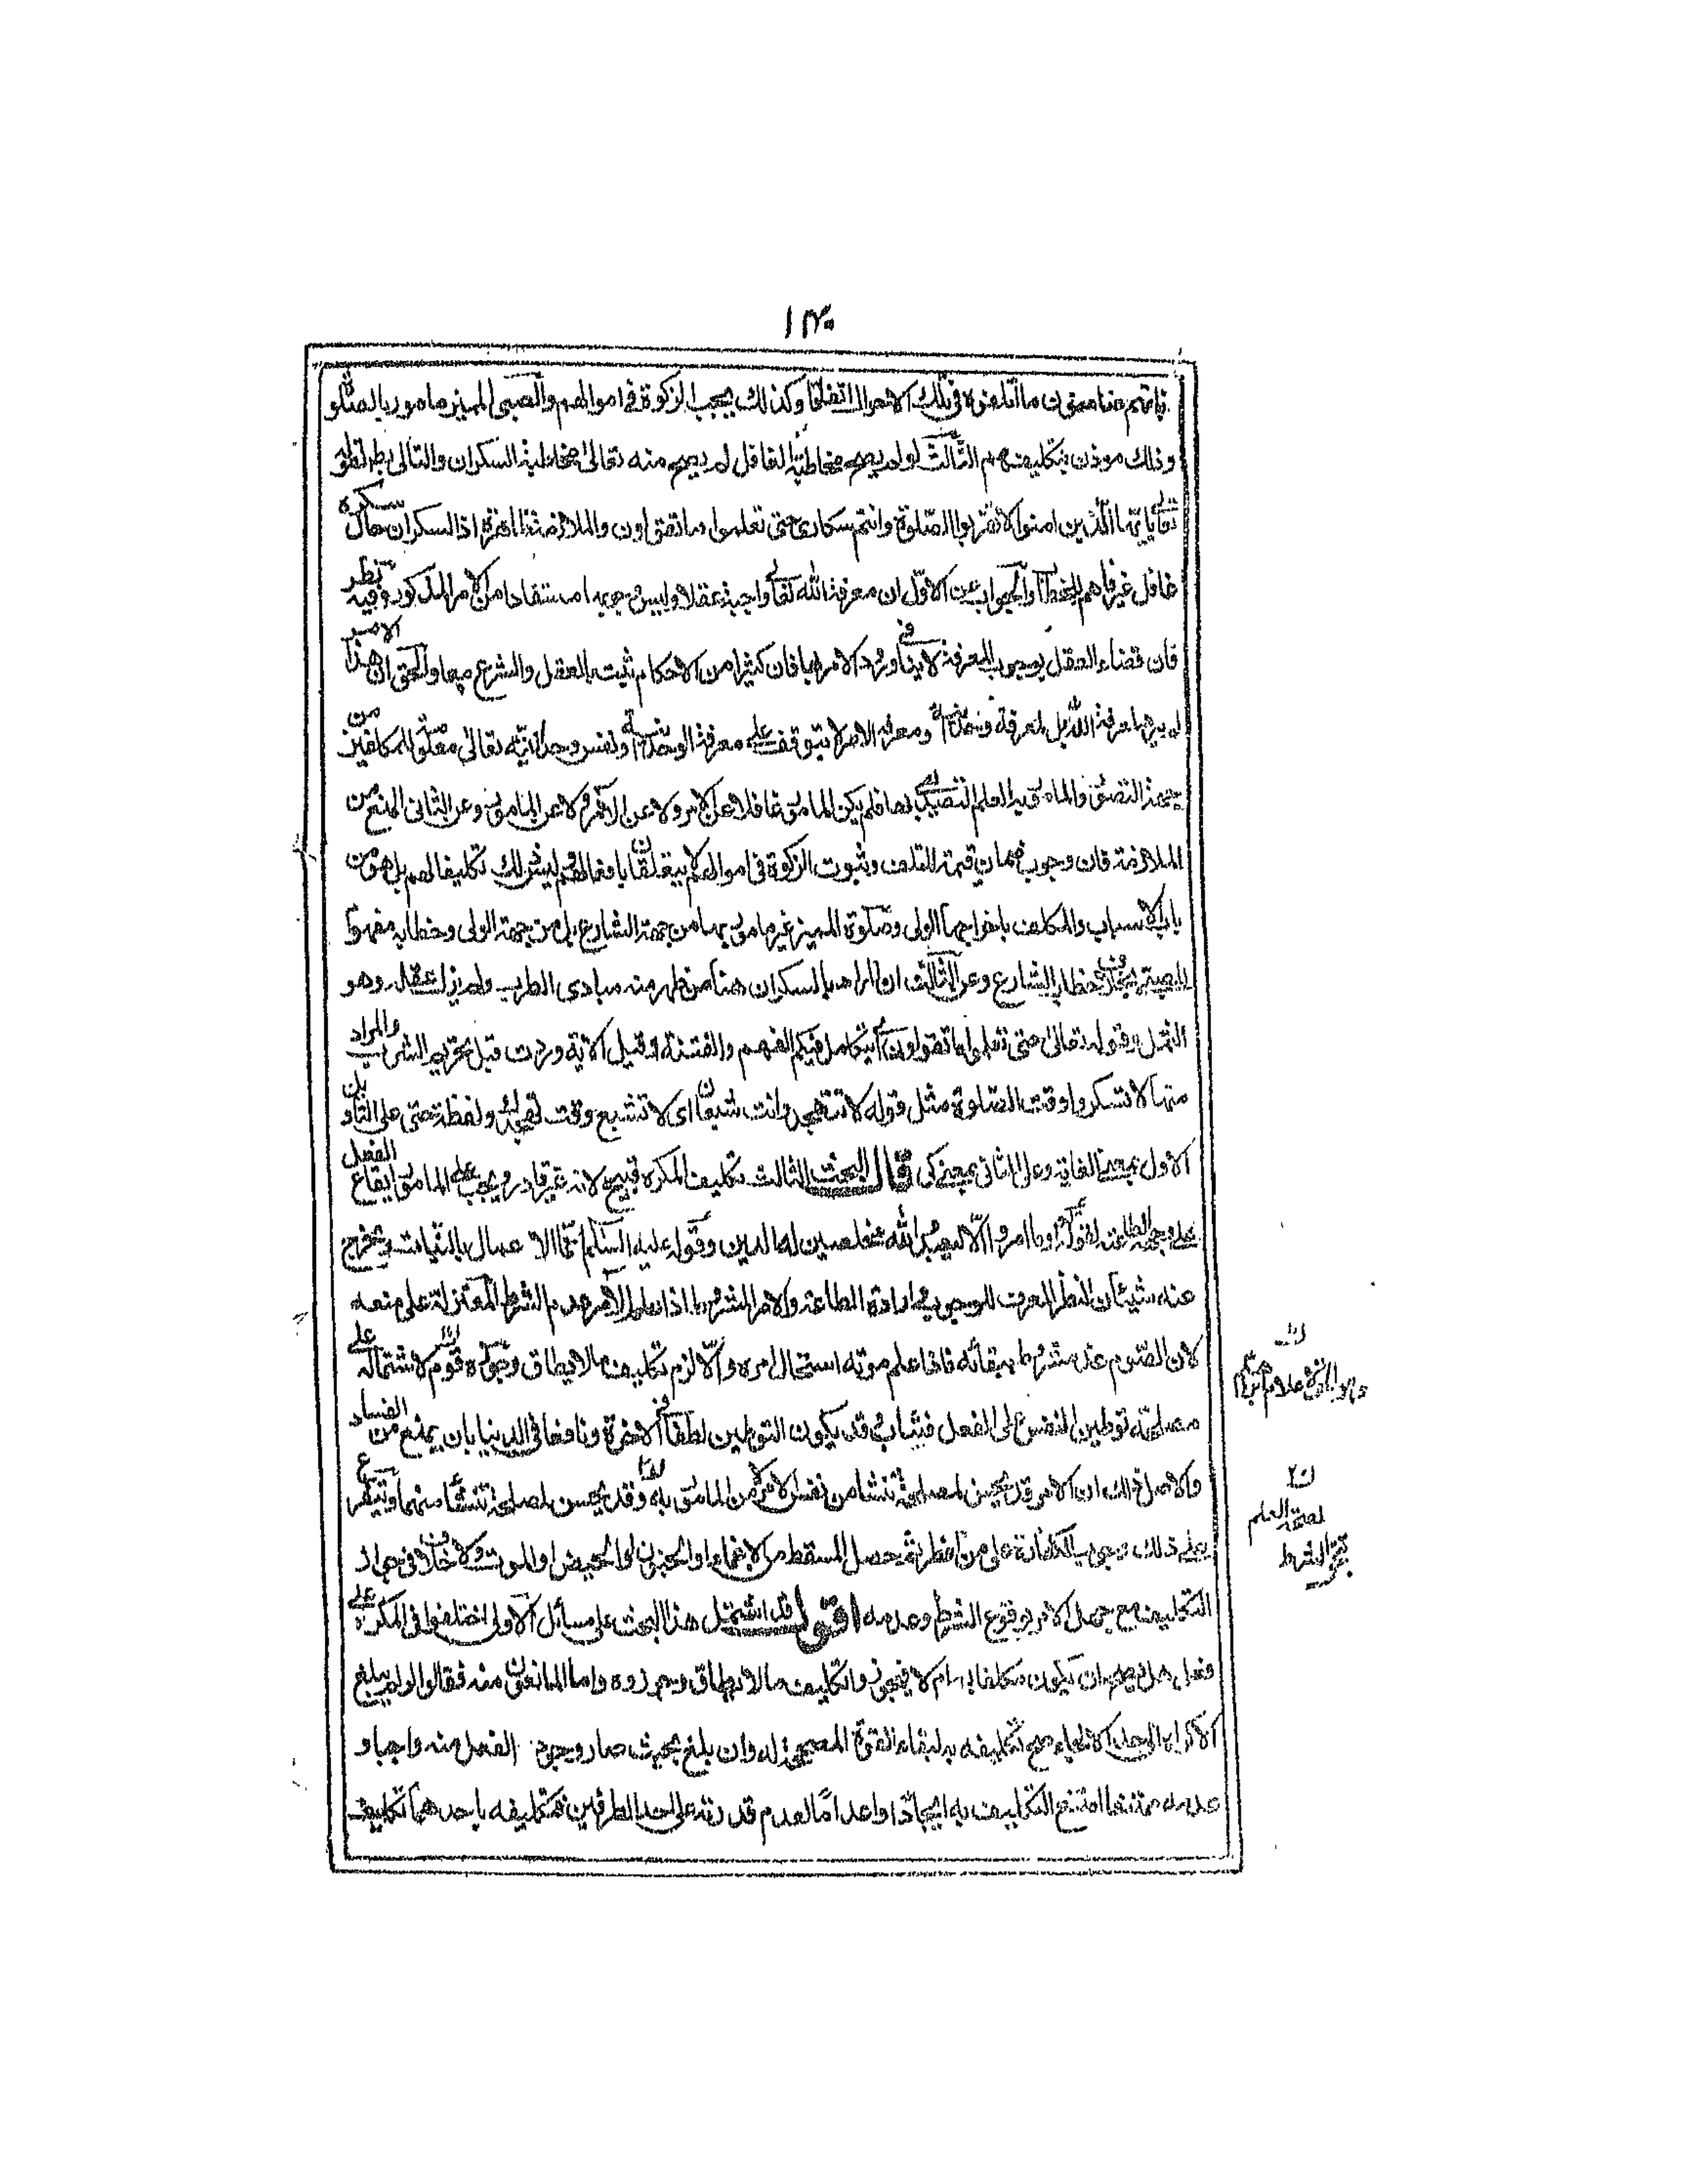 ١٣٠
فانهم ضامنون ما اتلفوه في تلك الاحوال اتفاقا وكذلك يجب الزكوة في اموالهم والصبي المميز مامور بالصلو
وذلك موذن بتكليفهم الثالث لو لم يصح مخاطبة الغافل لم يصح منه تعالى مخاطبة السكران والتالي بطر لقوله
تعالى يا ايها الذين امنوا لا تقربوا الصلوة وانتم سكارى حتى تعلموا ما تقولون والملازمة ظاهرة اذ السكران حال سكره
غافل غير فاهم للخطاب والجواب عن الاول ان معرفة الله تعالى واجبة عقلا وليس وجوبها مستفادا من الامر المذكور وفيه نظر
فان قضاء العقل بوجوب المعرفة لا ينافي ورود الامر بها فان كثيرا من الاحكام ثبت بالعقل والشرع معا والحق ان هذا الامر
لم يرد بمعرفة الله بل بمعرفة وحدانيته ومعرفة الامر لا يتوقف على معرفة الوحدانية ونفس وحدانيته تعالى معلوم للمكلفين من
جهة التصور والمامور به العلم التصديقي بها فلم يكن المامور غافلا عن الامر ولا عن الآمر ولا عن المامور وعن الثاني المنع من
الملازمة فان وجوب ضمان قيمة المتلف وثبوت الزكوة في اموالهم لا يتعلقان بافعالهم وليس ذلك تكليفا لهم بل هو من
باب الاسباب والمكلف باخراجها الولي وصلوة المميز غير مامور بها من جهة الشارع بل من جهة الولي وخطابه مفهوم
للصبي بخلاف خطاب الشارع وعن الثالث ان المراد بالسكران هنا من ظهر منه مبادي الطرب ولم يزل عقله وهو
الثمل وقوله تعالى حتى تعلموا ما تقولون اي يتكامل فيكم الفهم والفتنة وقيل الآية وردت قبل تحريم الشراب والمراد
منها لا تسكروا وقت الصلوة مثل قوله لا تتهجد وانت شبعان اي لا تشبع وقت تهجدك ولفظة حتى على التاويل
الاول بمعنى الغاية وعلى الثاني بمعنى كي قال البحث الثالث تكليف المكره قبيح لانه غير قادر ويجب على المامور ايقاع الفعل
على وجه الطاعة لقوله وما امروا الا ليعبدوا الله مخلصين له الدين وقوله عليه السلام انما الاعمال بالنيات ويخرج
عنه شيئان النظر المعرف للوجوب وارادة الطاعة والامر المشروط اذا علم الآمر عدم الشرط المعتزلة على منعه
لان الصوم عنده مشروط ببقائه فاذا علم موته استحال امره والا لزم تكليف ما لا يطاق وجوزه قوم لاشتماله على
مصلحة توطين النفس على الفعل فيثاب وقد يكون التوطين لطفا في الآخرة ونافعا في الدنيا بان يمنع من الفساد
والاصل في ذلك ان الامر قد يحسن لمصلحة تنشا من نفس الامر لا من المامور به وقد يحسن لمصلحة تنشا منهما ويتفرع
على ذلك وجوب الكفارة على من افطر ثم حصل المسقط من الاغماء او الجنون او الحيض او الموت ولا خلاف في جواز
التكليف مع جهل الآمر بوقوع الشرط وعدمه اقول قد اشتمل هذا البحث على مسائل الاولى اختلفوا في المكره على
فعل هل يصح ان يكون مكلفا به ام لا فيجوزوا تكليف ما لا يطاق وجوزوه واما المانعون منه فقالوا لو لم يبلغ
الاكراه الى حد الالجاء صح تكليفه به لبقاء القوة المصححة له وان بلغ بحيث صار وجود الفعل منه واجبا و
عدمه ممتنعا امتنع التكليف به ايجادا واعداما لعدم قدرته على احد الطرفين فتكليفه باحدهما تكليف
لصحة العلم